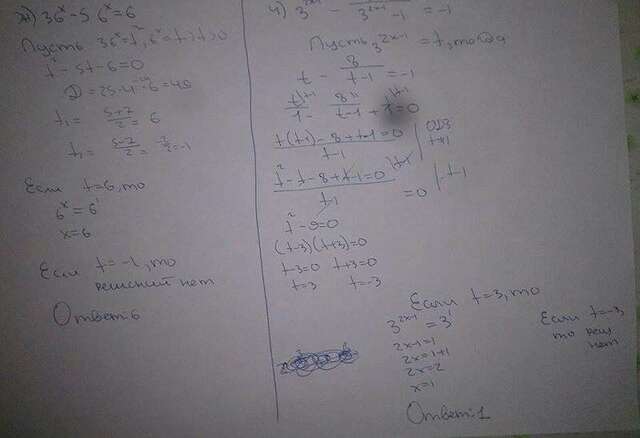 ж) 36ˣ-5 6ˣ=6
Пусть 36ˣ=t², 6ˣ=t, t>0
t²-5t-6=0
D=25-4·-6=49
t₁= (5+7)/2 = 6
t₁= (5-7)/2 = -2/2=-1
Если t=6, то
6ˣ=6¹
x=6
Если t=-1, то
решений нет
Ответ:6
ч) 3²ˣ⁻¹ - /(3²ˣ⁻¹-1) = -1
Пусть 3²ˣ⁻¹ = t, тогда
t - 8/(t-1) = -1
t/1 - 8/(t-1) + 1=0
(t(t-1)-8+t-1=0)/(t-1) | ОДЗ
t≠1
(t²-t-8+t-1=0)/(t-1) =0 | ·t-1
t²-9=0
(t-3)(t+3)=0
t-3=0 t+3=0
t=3 t=-3
Если t=3, то
3²ˣ⁻¹=3¹
2x-1=1
2x=1+1
2x=2
x=1
Ответ:1
Если t=-3,
то реш
нет